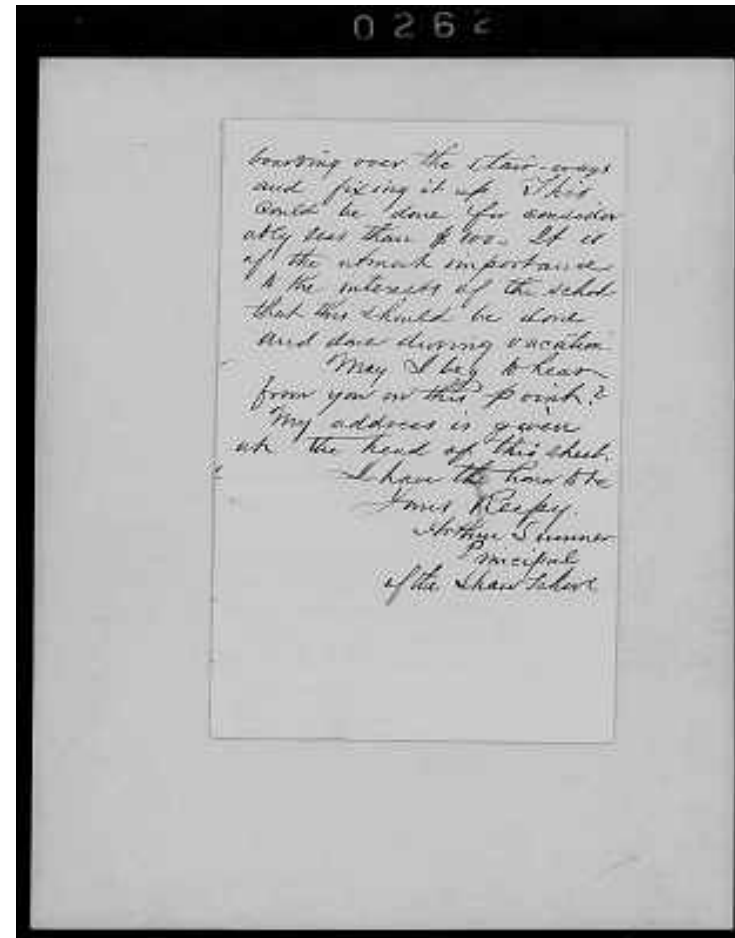 0262
boarding over the stair-ways
and fixing it up This
could be done for consider
ably less than $100. It is
of the utmost importance
to the interests of the school
that this should be done
and done during vacation
May I beg to hear
from you on this point?
My address is given
at the head of this sheet.
I have the honor to be
Yours Respy.
Arthur Sumner
Principal
of the Shaw School